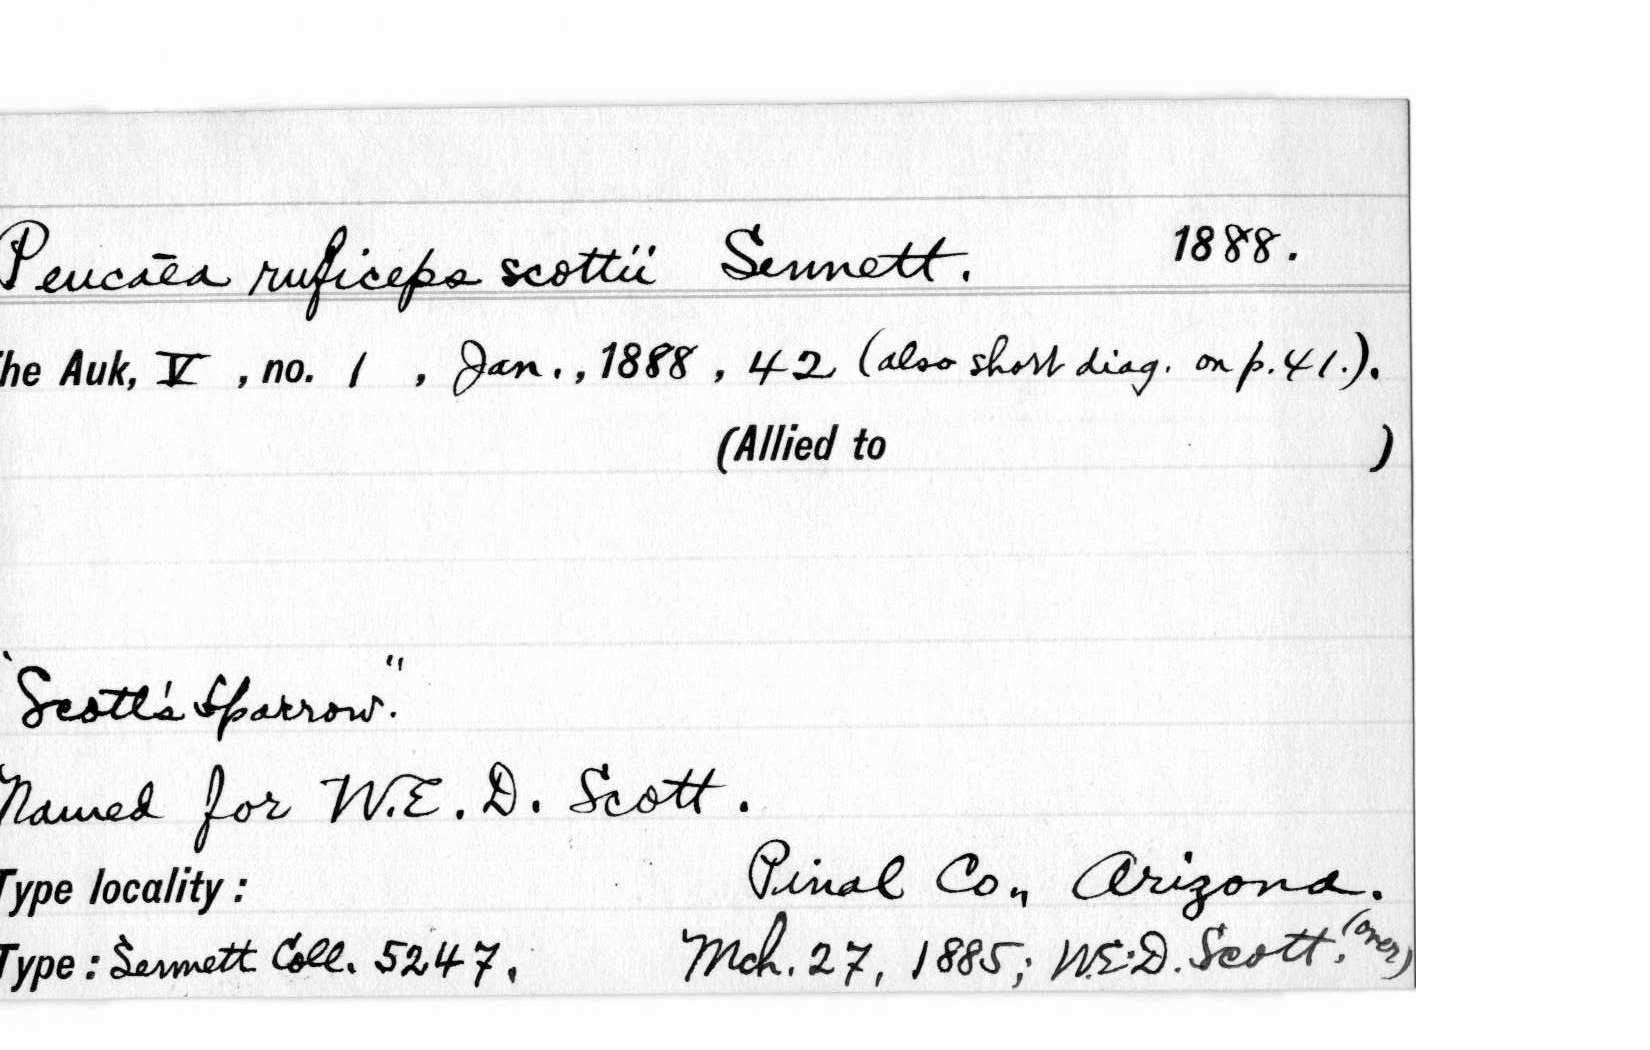 Peucæa ruficeps scottii Sennett. 1888.
The Auk, V, no. 1, Jan., 1888, 42 (also short diag. on p. 41.).
(Allied to )
"Scott's Sparrow."
Named for W.E.D. Scott.
Type locality: Pinal Co., Arizona.
Type: Sennett Coll. 5247. Mch. 27, 1885; W.E.D. Scott. (over)